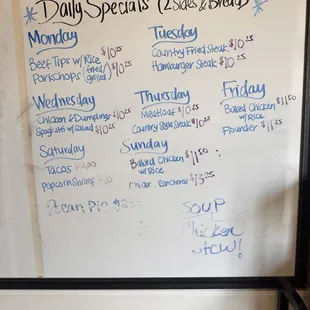 Daily Specials (2 Sides & Bread)
Monday
Beef Tips w/ Rice $10.25
Porkchops (fried/grilled) $10.25
Tuesday
Country Fried Steak $10.25
Hamburger Steak $10.25
Wednesday
Chicken & Dumplings $10.25
Spaghetti w/ Salad $10.25
Thursday
Meatloaf $10.25
Country Style Steak $10.25
Friday
Baked Chicken $11.50
w/ Rice
Flounder $11.25
Saturday
Tacos
Popcorn Shrimp
Sunday
Baked Chicken $11.50
w/ Rice
Rancheros $13.25
Pecan Pie
SOUP
Chicken